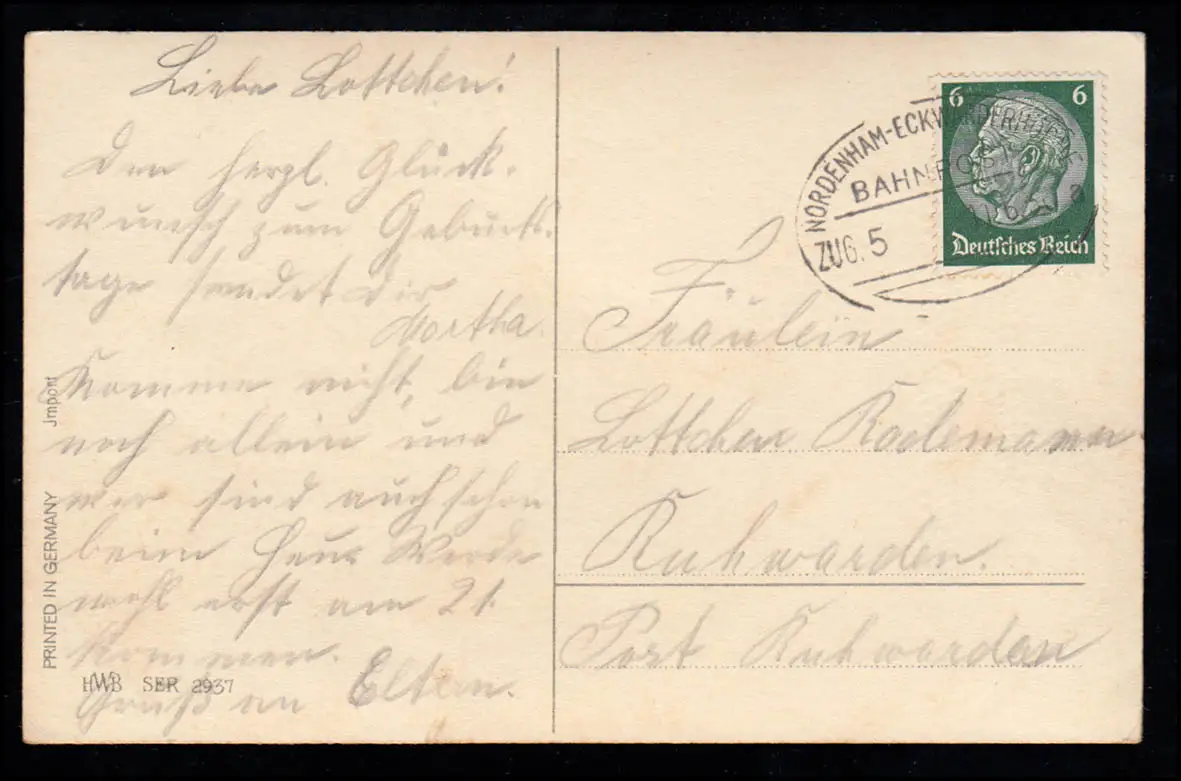 Liebe Lottchen!
Den herzl. Glück-
wunsch zum Geburts-
tage sendet dir
Martha.
Komme nicht, bin
noch allein und
wir sind auch schon
beim Heu. Werde
wohl erst am 21.
kommen.
Gruß an Eltern.
Jmport
PRINTED IN GERMANY
HWB SER 2937
6 6
Deutsches Reich
NORDENHAM-ECKWARDERHÖRNE
BAHNPOST
ZUG. 5
Fräulein
Lottchen
Ruhwarden.
Post Ruhwarden